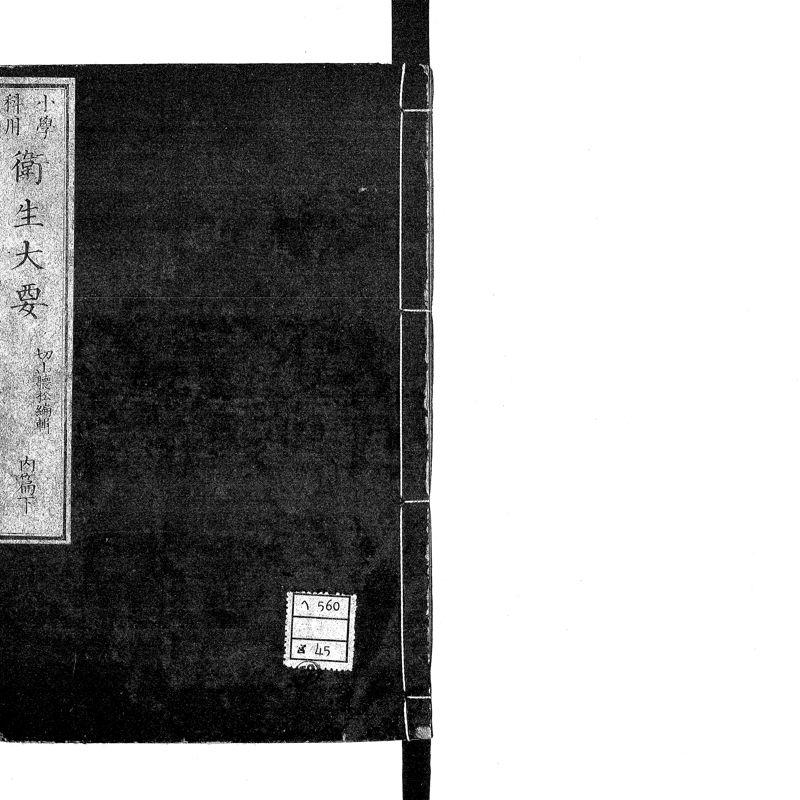 小學
科用
衛生大要
切山聽松編輯
内篇下
ヘ 560
45